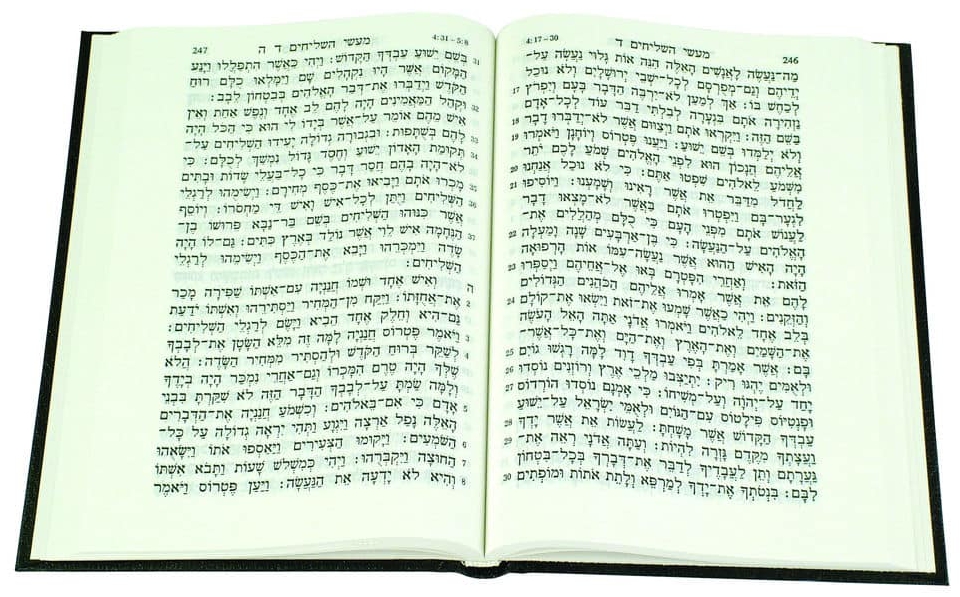 246 מעשי השליחים ד 4:17–30
מַה־נַּעֲשֶׂה לָאֲנָשִׁים הָאֵלֶּה הִנֵּה אוֹת גָּלוּי נַעֲשָׂה עַל־
יְדֵיהֶם וְגַם־מְפֻרְסָם לְכָל־ישְׁבֵי יְרוּשָׁלַיִם וְלֹא נוּכַל
לְכַחֶשׁ בּוֹ׃ אַךְ לְמַעַן לֹא־יִרְבֶּה הַדָּבָר בָּעָם וְיִפְרֹץ 17
נַזְהִירָה אֹתָם בִּגְעָרָה לְבִלְתִּי דַבֵּר עוֹד לְכָל־אָדָם
בַּשֵּׁם הַזֶּה׃ וַיִּקְרְאוּ אֹתָם וַיְצַוּוּם אֲשֶׁר לֹא־יְדַבְּרוּ דָבָר 18
וְלֹא יְלַמְּדוּ בְּשֵׁם יֵשׁוּעַ׃ וַיַּעֲנוּ פֶטְרוֹס וְיוֹחָנָן וַיֹּאמְרוּ 19
אֲלֵיהֶם הֲנָכוֹן הוּא לִפְנֵי הָאֱלֹהִים שְׁמֹעַ לָכֶם יֹתֵר
מִשְּׁמֹעַ לֵאלֹהִים שִׁפְטוּ אַתֶּם׃ כִּי לֹא נוּכַל אֲנַחְנוּ 20
לַחְדֹּל מִדַּבֵּר אֵת אֲשֶׁר רָאִינוּ וְשָׁמָעְנוּ׃ וַיּוֹסִיפוּ 21
לִגְעָר־בָּם וַיִּפְטְרוּ אֹתָם בַּאֲשֶׁר לֹא־מָצְאוּ דָבָר
לַעֲנוֹשׁ אֹתָם מִפְּנֵי הָעָם כִּי כֻלָּם מְהַלְלִים אֶת־
הָאֱלֹהִים עַל־הַנַּעֲשָׂה׃ כִּי בֶּן־אַרְבָּעִים שָׁנָה וָמַעְלָה 22
הָיָה הָאִישׁ הַהוּא אֲשֶׁר נַעֲשָׂה־עִמּוֹ אוֹת הָרְפוּאָה
הַזֹּאת׃ וְאַחֲרֵי הִפָּטְרָם בָּאוּ אֶל־אֲחֵיהֶם וַיְסַפְּרוּ 23
לָהֶם אֵת אֲשֶׁר אָמְרוּ אֲלֵיהֶם הַכֹּהֲנִים הַגְּדוֹלִים
וְהַזְּקֵנִים׃ וַיְהִי כַּאֲשֶׁר שָׁמְעוּ אֶת־זֹאת וַיִּשְׂאוּ אֶת־קוֹלָם 24
בְּלֵב אֶחָד לֵאלֹהִים וַיֹּאמְרוּ אֲדֹנָי אַתָּה הָאֵל הָעֹשֶׂה
אֶת־הַשָּׁמַיִם וְאֶת־הָאָרֶץ וְאֶת־הַיָּם וְאֶת־כָּל־אֲשֶׁר־
בָּם׃ אֲשֶׁר אָמַרְתָּ בְּפִי עַבְדְּךָ דָוִד לָמָּה רָגְשׁוּ גוֹיִם 25
וּלְאֻמִּים יֶהְגּוּ רִיק׃ יִתְיַצְּבוּ מַלְכֵי אֶרֶץ וְרוֹזְנִים נוֹסְדוּ 26
יָחַד עַל־יְהוָֹה וְעַל־מְשִׁיחוֹ׃ כִּי אָמְנָם נוֹסְדוּ הוֹרְדוֹס 27
וּפָנְטִיוֹס פִּילָטוֹס עִם־הַגּוֹיִם וּלְאֻמֵּי יִשְׂרָאֵל עַל־יֵשׁוּעַ
עַבְדְּךָ הַקָּדוֹשׁ אֲשֶׁר מָשָׁחְתָּ׃ לַעֲשׂוֹת אֵת אֲשֶׁר יָדְךָ 28
וַעֲצָתְךָ מִקֶּדֶם גָּזְרָה לִהְיוֹת׃ וְעַתָּה אֲדֹנָי רְאֵה אֶת־ 29
גַּעֲרָתָם וְתֵן לַעֲבָדֶיךָ לְדַבֵּר אֶת־דְּבָרְךָ בְּכָל־בִּטְחוֹן
לִבָּם׃ בִּנְטֹתְךָ אֶת־יָדְךָ לְמַרְפֵּא וְלָתֵת אֹתוֹת וּמוֹפְתִים 30
4:31–5:8 מעשי השליחים ד ה 247
בְּשֵׁם יֵשׁוּעַ עַבְדְּךָ הַקָּדוֹשׁ׃ וַיְהִי כַּאֲשֶׁר הִתְפַּלְלוּ וַיָּנַע 31
הַמָּקוֹם אֲשֶׁר הָיוּ נִקְהָלִים שָׁם וַיִּמָּלְאוּ כֻלָּם רוּחַ
הַקֹּדֶשׁ וַיְדַבְּרוּ אֶת־דְּבַר הָאֱלֹהִים בְּבִטְחוֹן לֵבָב׃
וּקְהַל הַמַּאֲמִינִים הָיָה לָהֶם לֵב אֶחָד וְנֶפֶשׁ אֶחָת וְאֵין 32
אִישׁ מֵהֶם אוֹמֵר עַל־אֲשֶׁר בְּיָדוֹ לִי הוּא כִּי הַכֹּל הָיָה
לָהֶם בְּשֻׁתָּפוּת׃ וּבִגְבוּרָה גְדוֹלָה יָעִידוּ הַשְּׁלִיחִים עַל־ 33
תְּקוּמַת הָאָדוֹן יֵשׁוּעַ וְחֶסֶד גָּדוֹל נִמְשַׁךְ לְכֻלָּם׃ כִּי 34
לֹא־הָיָה בָהֶם חֲסַר דָּבָר כִּי כָל־בַּעֲלֵי שָׂדוֹת וּבָתִּים
מָכְרוּ אֹתָם וַיָּבִיאוּ אֶת־כֶּסֶף מְחִירָם׃ וַיָּשִׂימֵהוּ לְרַגְלֵי 35
הַשְּׁלִיחִים וַיֻּתַּן לְכָל־אִישׁ וָאִישׁ דֵּי מַחְסֹרוֹ׃ וְיוֹסֵף 36
אֲשֶׁר כִּנּוּהוּ הַשְּׁלִיחִים בְּשֵׁם בַּר־נַבָּא פֵּרוּשׁוֹ בֶּן־
הַנֶּחָמָה אִישׁ לֵוִי אֲשֶׁר נוֹלַד בְּאֶרֶץ כִּתִּים׃ גַּם־לוֹ הָיָה 37
שָׂדֶה וַיִּמְכְּרֵהוּ וַיָּבֵא אֶת־הַכֶּסֶף וַיְשִׂימֵהוּ לְרַגְלֵי
הַשְּׁלִיחִים׃
וְאִישׁ אֶחָד וּשְׁמוֹ חֲנַנְיָה עִם־אִשְׁתּוֹ שַׁפִּירָה מָכַר ה
אֶת־אֲחֻזָּתוֹ׃ וַיִּקַּח מִן־הַמְּחִיר וַיַּסְתִּירֵהוּ וְאִשְׁתּוֹ יֹדַעַת 2
גַּם־הִיא וְחֵלֶק אֶחָד הֵבִיא וַיָּשֶׂם לְרַגְלֵי הַשְּׁלִיחִים׃
וַיֹּאמֶר פֶּטְרוֹס חֲנַנְיָה לָמָּה זֶה מִלֵּא הַשָּׂטָן אֶת־לְבָבְךָ 3
לְשַׁקֵּר בְּרוּחַ הַקֹּדֶשׁ וּלְהַסְתִּיר מִמְּחִיר הַשָּׂדֶה׃ הֲלֹא 4
שֶׁלְּךָ הָיָה טֶרֶם הִמָּכְרוֹ וְגַם־אַחֲרֵי נִמְכַּר הָיָה בְיָדֶךָ
וְלָמָּה שַׂמְתָּ עַל־לְבָבְךָ הַדָּבָר הַזֶּה לֹא שִׁקַּרְתָּ בִּבְנֵי
אָדָם כִּי אִם־בֵּאלֹהִים׃ וְכִשְׁמֹעַ חֲנַנְיָה אֶת־הַדְּבָרִים 5
הָאֵלֶּה נָפַל אַרְצָה וַיִּגְוָע וַתְּהִי יִרְאָה גְדוֹלָה עַל כָּל־
הַשֹּׁמְעִים׃ וַיָּקוּמוּ הַצְּעִירִים וַיַּאַסְפוּ אֹתוֹ וַיִּשָּׂאֻהוּ 6
הַחוּצָה וַיִּקְבְּרֻהוּ׃ וַיְהִי כְּמִשְׁלשׁ שָׁעוֹת וַתָּבֹא אִשְׁתּוֹ 7
וְהִיא לֹא יָדְעָה אֵת הַנַּעֲשָׂה׃ וַיַּעַן פֶּטְרוֹס וַיֹּאמֶר 8